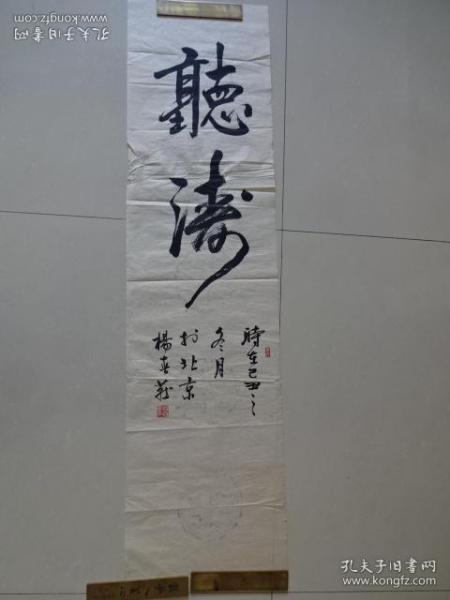 聽濤
時在己丑之
冬月
於北京
楊喜莊
孔夫子旧书网
www.kongfz.com
孔夫子旧书网
www.kongfz.com